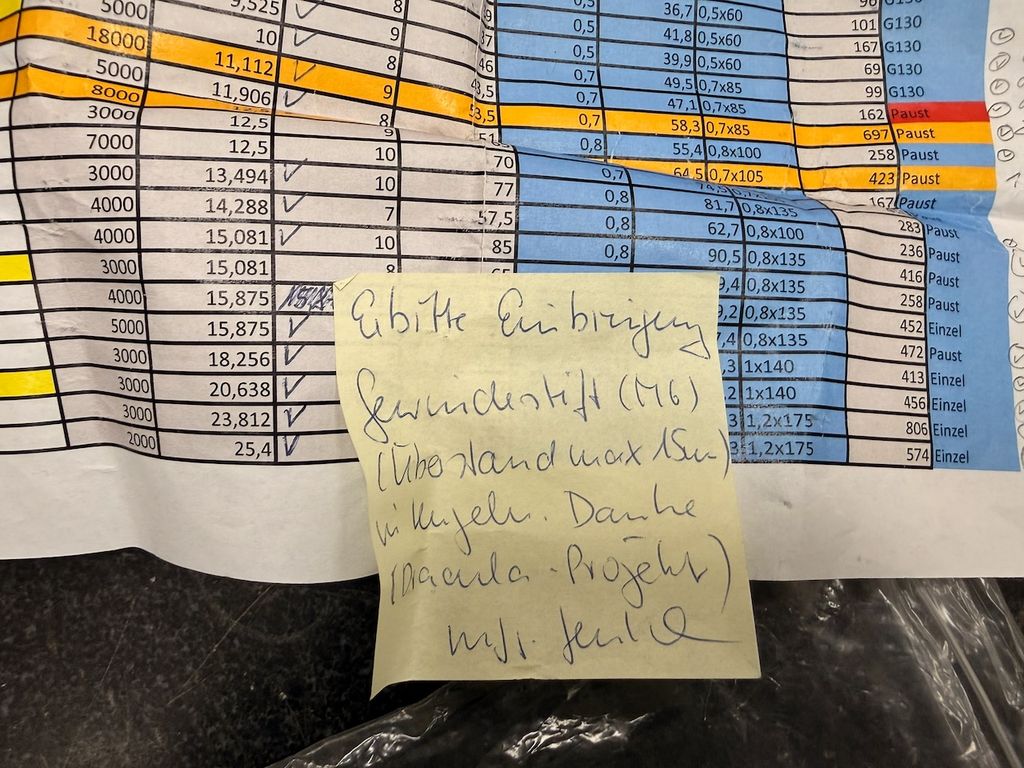 5000 9,525 8 0,5 36,7 0,5x60 96 G130
18000 10 9 37 0,5 41,8 0,5x60 101 G130
5000 11,112 8 46 0,5 39,9 0,5x60 167 G130
8000 11,906 9 43,5 0,7 49,5 0,7x85 69 G130
3000 12,5 8 53,5 0,7 47,1 0,7x85 99 G130
7000 12,5 9 51 0,7 58,3 0,7x85 162 Paust
3000 13,494 10 70 0,8 55,4 0,8x100 697 Paust
4000 14,288 10 77 0,7 64,5 0,7x105 258 Paust
4000 15,081 7 57,5 0,8 74,5 423 Paust
3000 15,081 10 85 0,8 81,7 0,8x135 167 Paust
4000 15,875 8 65 0,8 62,7 0,8x100 283 Paust
5000 15,875 90,5 0,8x135 236 Paust
3000 18,256 9,4 0,8x135 416 Paust
3000 20,638 9,2 0,8x135 258 Paust
3000 23,812 7,4 0,8x135 452 Einzel
2000 25,4 3 1x140 472 Paust
2 1x140 413 Einzel
3 1,2x175 456 Einzel
3 1,2x175 806 Einzel
574 Einzel
Erbitte Einbringung
Gewindestift (M6)
(Überstand max 15mm)
in Kugeln. Danke
(Dracula-Projekt)
mfg.